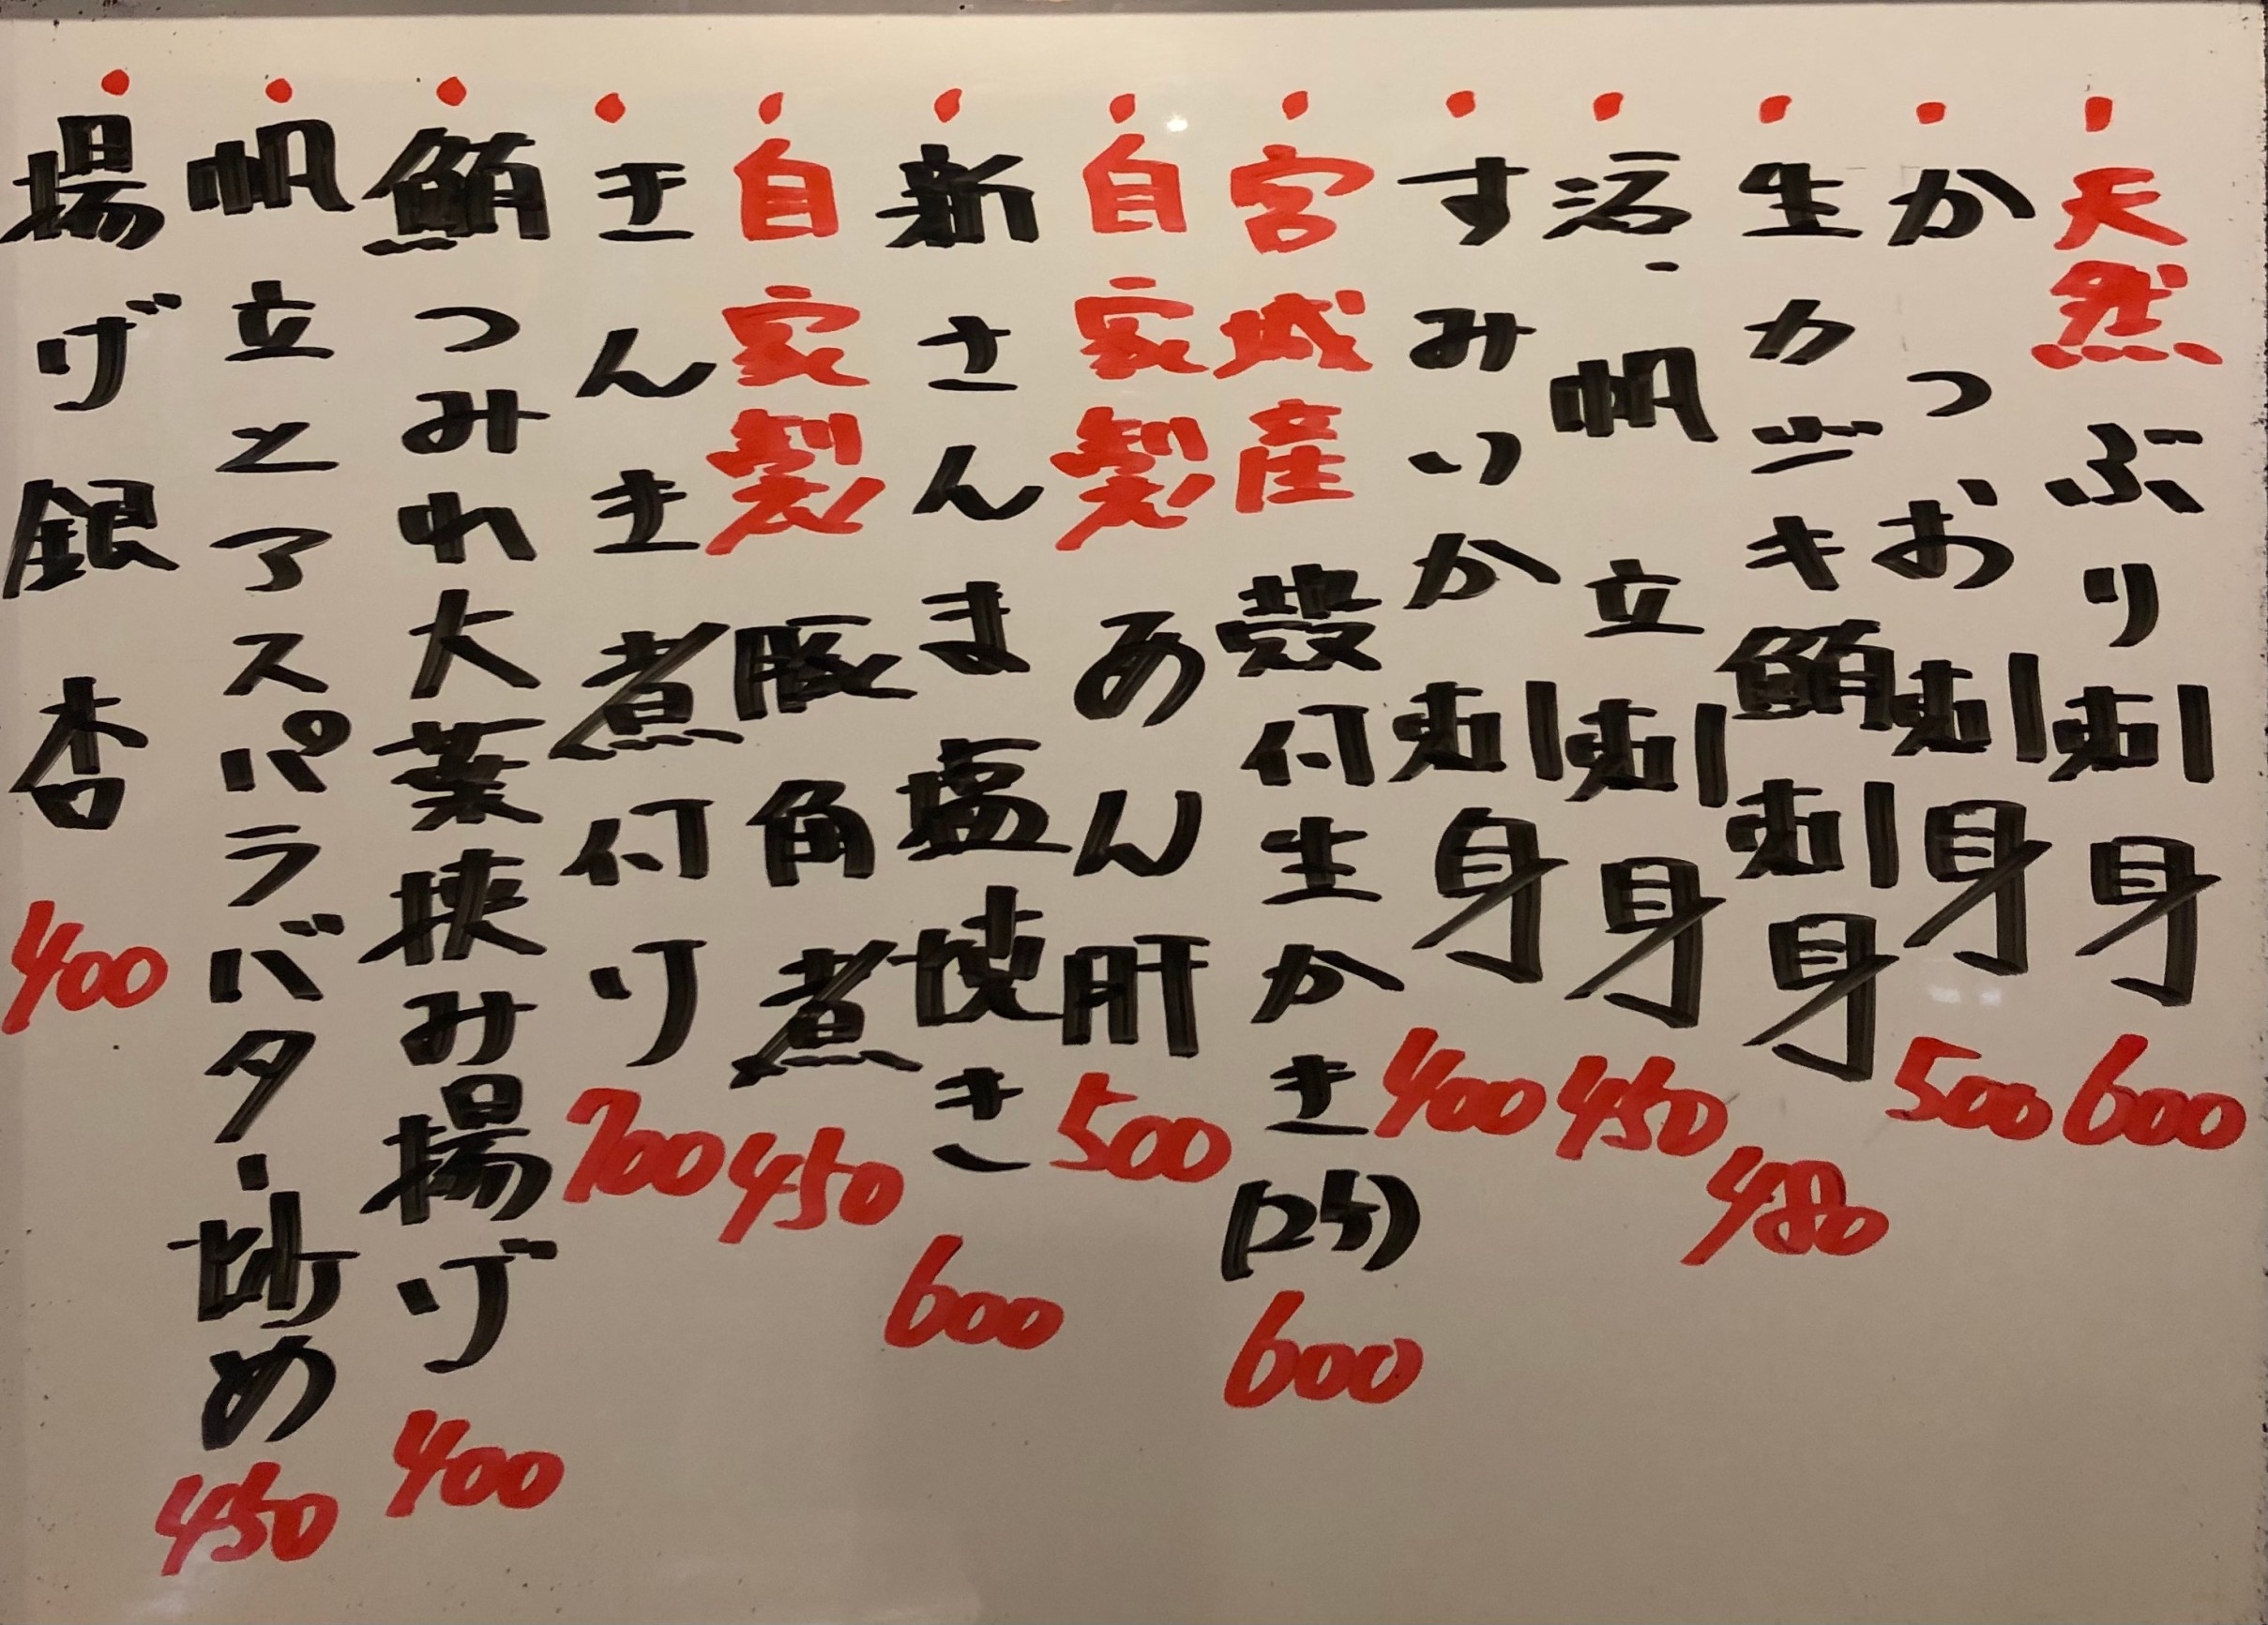 ・天然ぶり刺身 600
・かつお刺身 500
・生カジキ鮪刺身 480
・活・帆立刺身 450
・すみいか刺身 400
・宮城産殻付生かき(2ケ) 600
・自家製あん肝 500
・新さんま塩焼き 600
・自家製豚角煮 450
・きんき煮付け 700
・鮪つみれ大葉挟み揚げ 400
・帆立とアスパラバター炒め 450
・揚げ銀杏 400